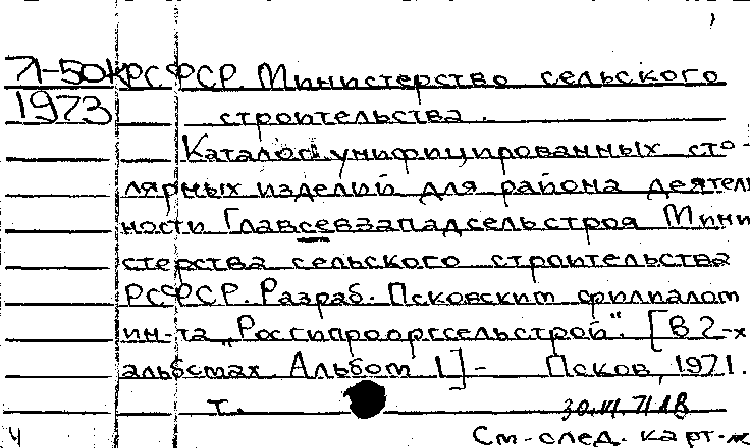 71-50К РСФСР. Министерство сельского
1973 строительства.
Каталог унифицированных сто-
лярных изделий для района деятель
ности Главсевзападсельстроя Мини
стерства сельского строительства
РСФСР. Разраб. Псковским филиалом
ин-та „Росгипрооргсельстрой". [В 2-х
альбомах. Альбом 1] - Псков, 1971.
т.
Ч См-след. карт-